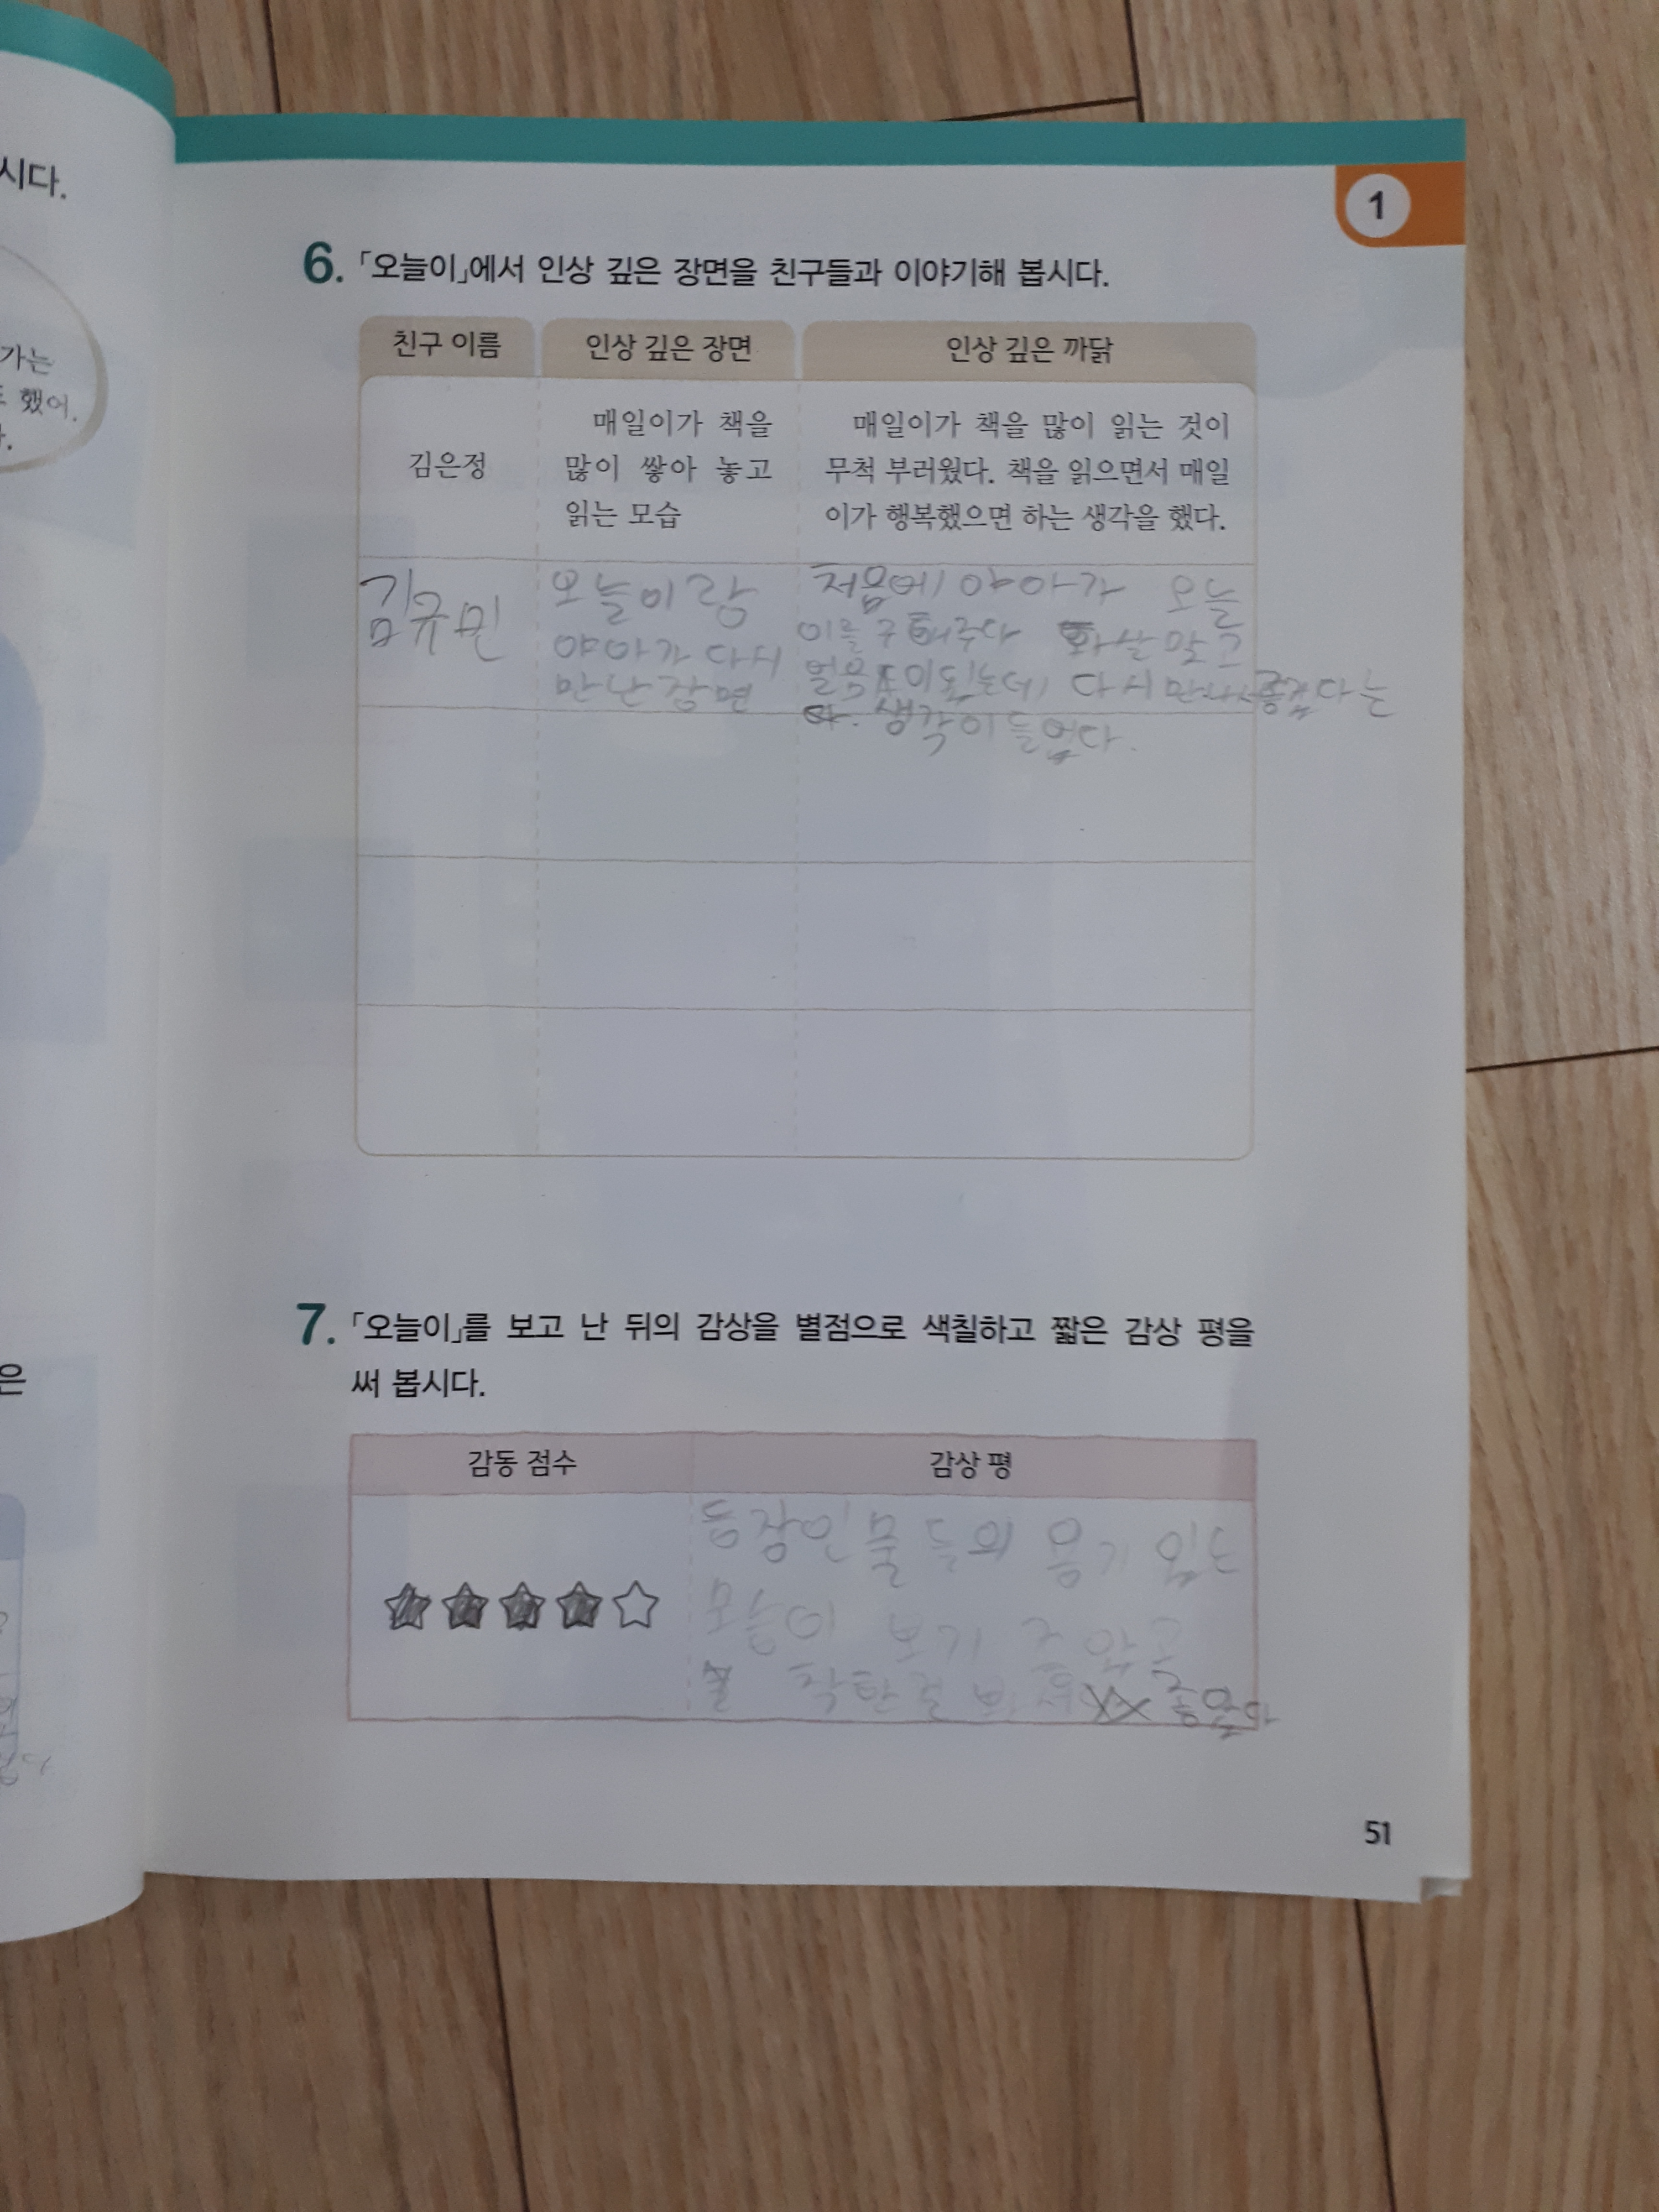 시다.
가는
했어.
은
1
6. 「오늘이」에서 인상 깊은 장면을 친구들과 이야기해 봅시다.
친구 이름 인상 깊은 장면 인상 깊은 까닭
김은정
매일이가 책을
많이 쌓아 놓고
읽는 모습
매일이가 책을 많이 읽는 것이
무척 부러웠다. 책을 읽으면서 매일
이가 행복했으면 하는 생각을 했다.
김규민
오늘이랑
야아가 다시
만난 장면
처음에 야아가 오늘
이를 구해주다 화살 맞고
얼음 이 됬는데 다시 만나 좋겠다는
생각이 들었다.
7. 「오늘이」를 보고 난 뒤의 감상을 별점으로 색칠하고 짧은 감상 평을
써 봅시다.
감동 점수 감상 평
등장인물들의 용기 있는
모습이 보기 좋았고
착한걸 좋았다
51